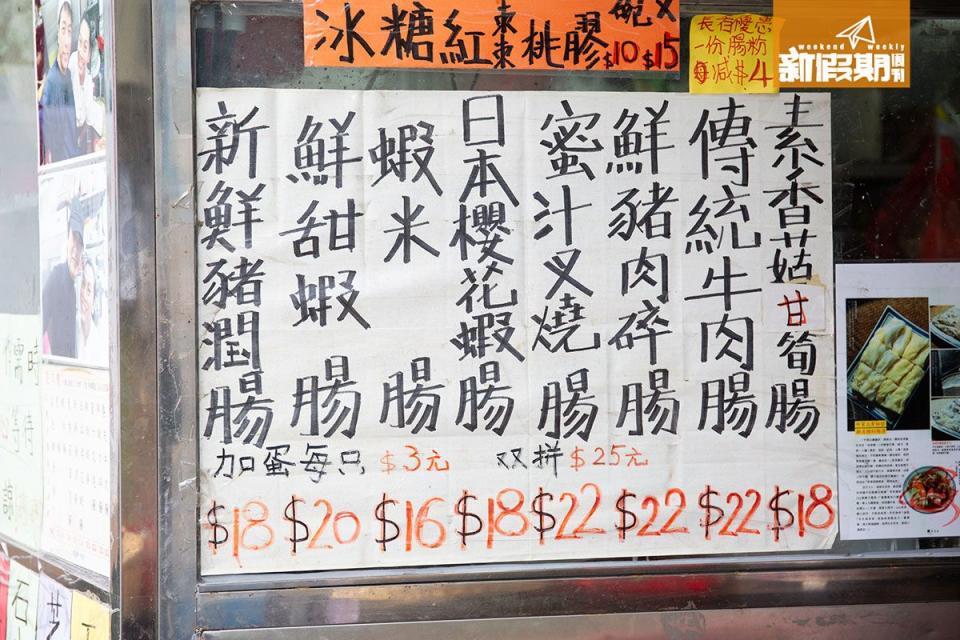 冰糖紅棗桃膠
$10 $15
長者優惠
一份腸粉
每減$4
weekend weekly
新假期
周刊
素香菇甘筍腸
傳統牛肉腸
鮮豬肉碎腸
蜜汁叉燒腸
日本櫻花蝦腸
蝦米腸
鮮甜蝦腸
新鮮豬潤腸
加蛋每只 $3元 双拼 $25元
$18 $20 $16 $18 $22 $22 $22 $18